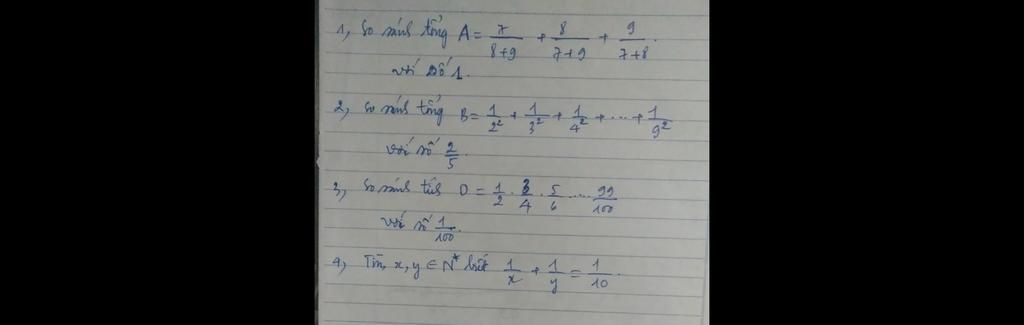 1, So sánh tổng A = 7/(8+9) + 8/(7+9) + 9/(7+8).
với số 1.
2, So sánh tổng B = 1/2² + 1/3² + 1/4² + ... + 1/9²
với số 2/5.
3, So sánh tích D = 1/2 . 3/4 . 5/6 .... 99/100
với số 1/100.
4, Tìm, x, y ∈ N* biết 1/x + 1/y = 1/10.